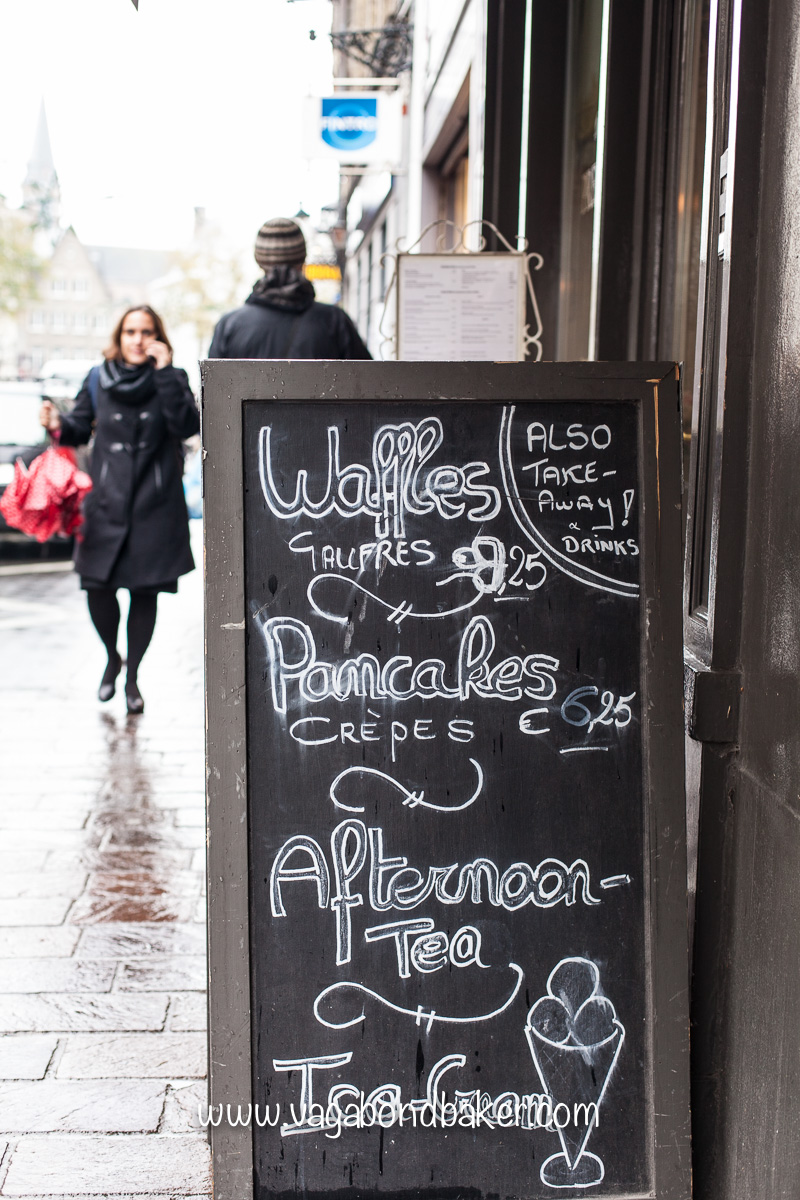 Waffles
GAUFRES ,25
ALSO
TAKE-
AWAY!
& DRINKS
Pancakes
CRÈPES € 6,25
Afternoon-
Tea
Ice-Cream
www.vagabondbaker.com